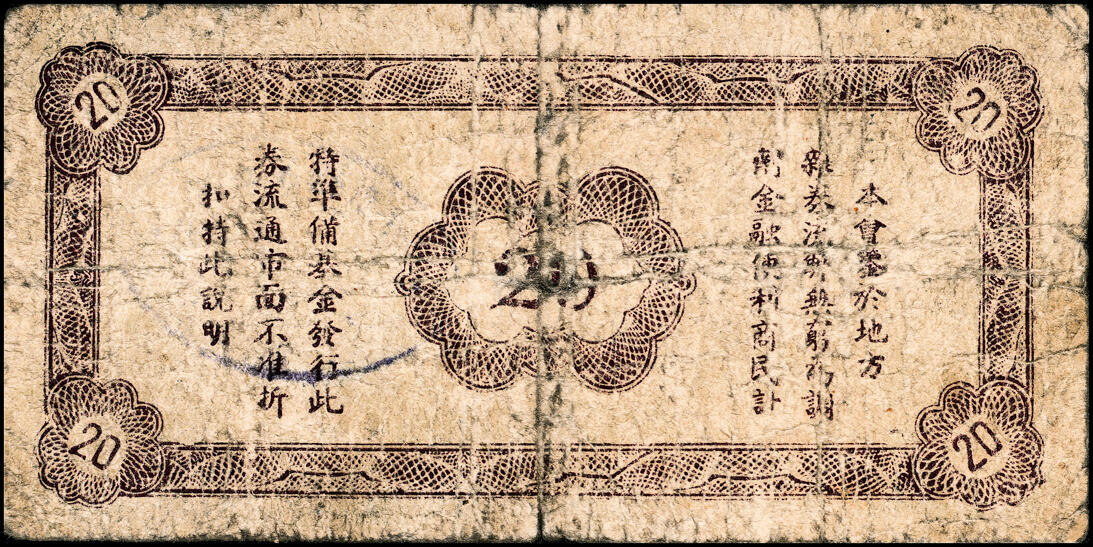 20
20
本會鑒於地方
雜券流弊無窮為調
劑金融便利商民計
20
特準備基金發行此
券流通市面不准折
扣持此說明
20
20